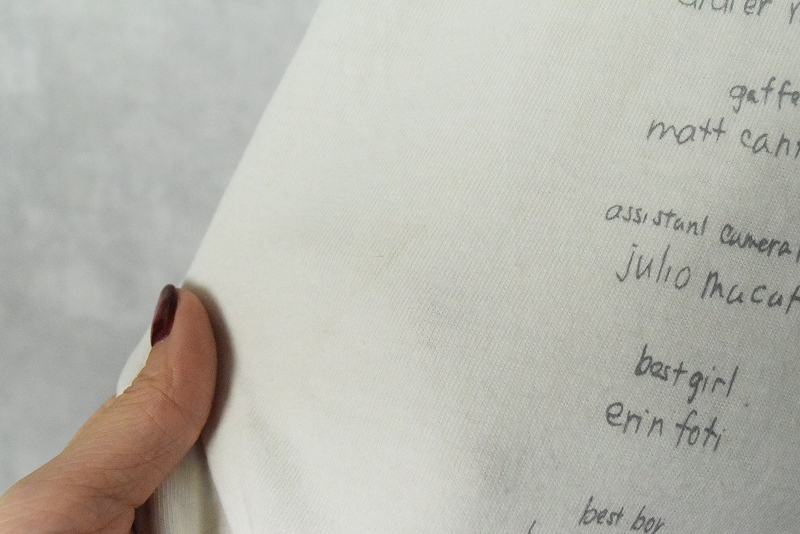 gaffe
matt cant
assistant camera
julio macat
best girl
erin foti
best boy